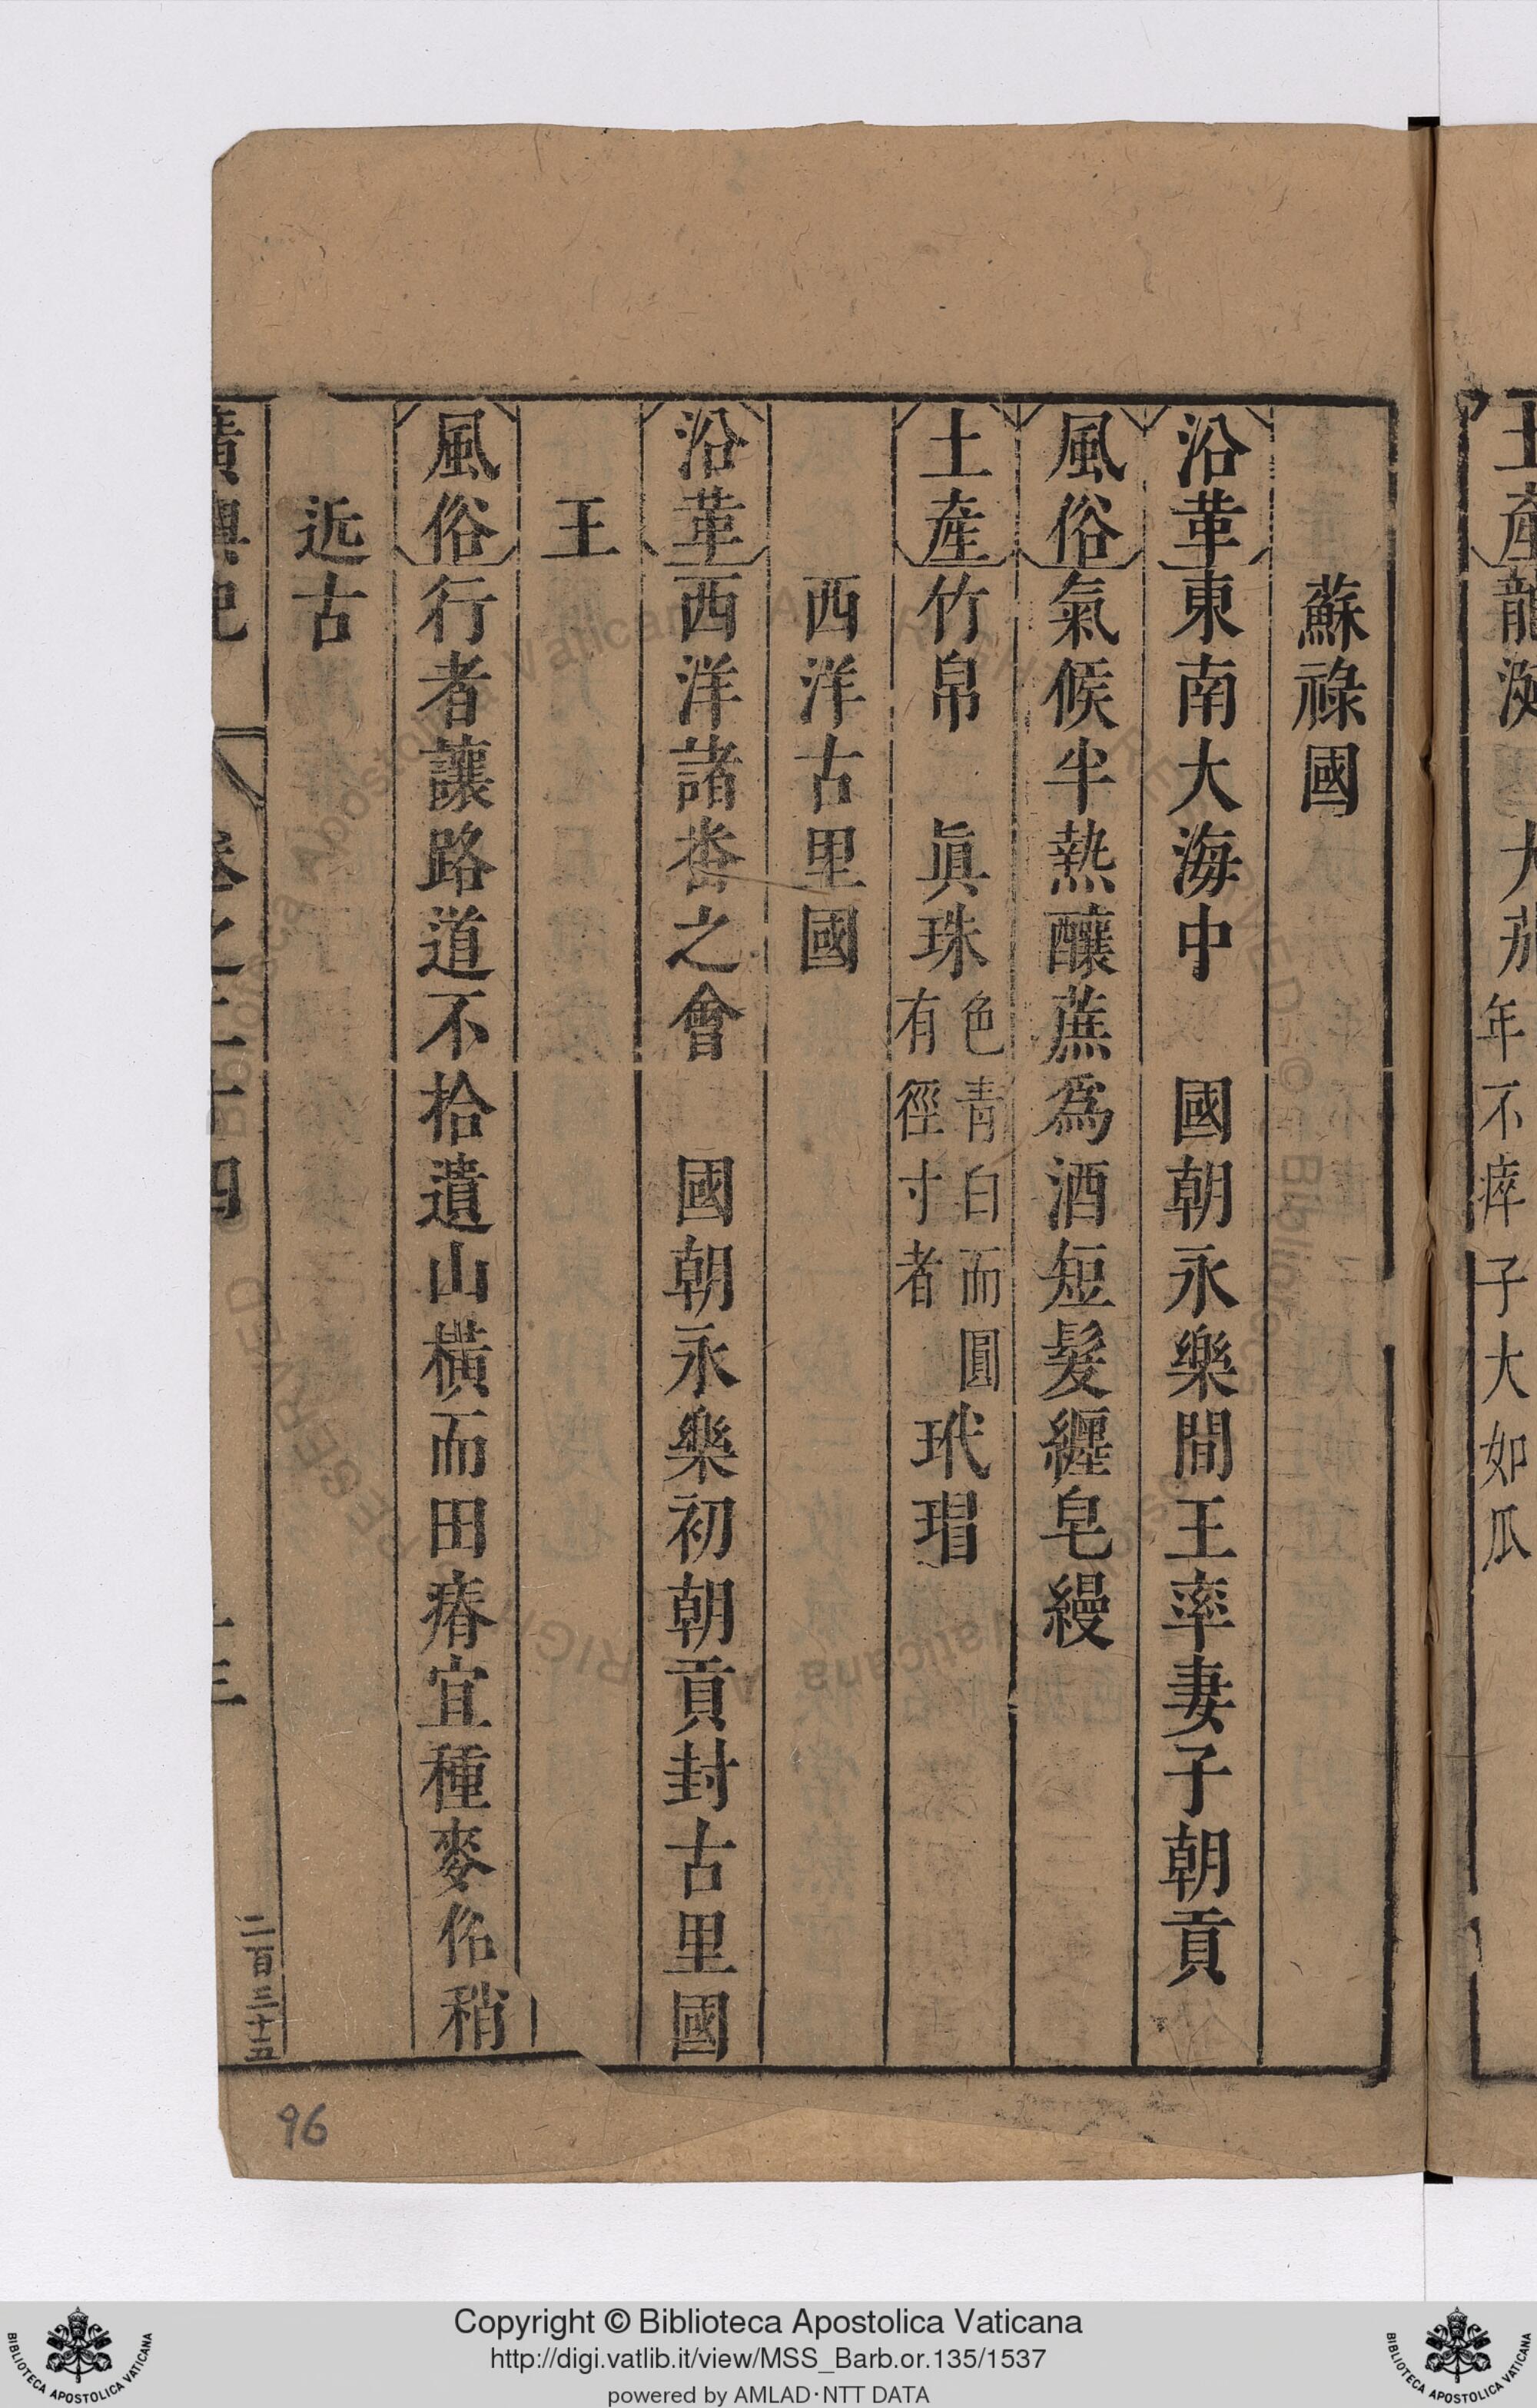 土產龍涎 大茄年不瘁子大如瓜
蘇祿國
沿革東南大海中 國朝永樂間王率妻子朝貢
風俗氣候半熱釀蔗爲酒短髮纏皂縵
土產竹帛 眞珠色青白而圓有徑寸者玳瑁
西洋古里國
沿革西洋諸畨之會 國朝永樂初朝貢封古里國
王
風俗行者讓路道不拾遺山橫而田瘠宜種麥俗稍
近古
廣輿記 卷之二十四
二百三十五
96
Copyright © Biblioteca Apostolica Vaticana
http://digi.vatlib.it/view/MSS_Barb.or.135/1537
powered by AMLAD·NTT DATA
BIBLIOTECA APOSTOLICA VATICANA
BIBLIOTECA APOSTOLICA VATICANA